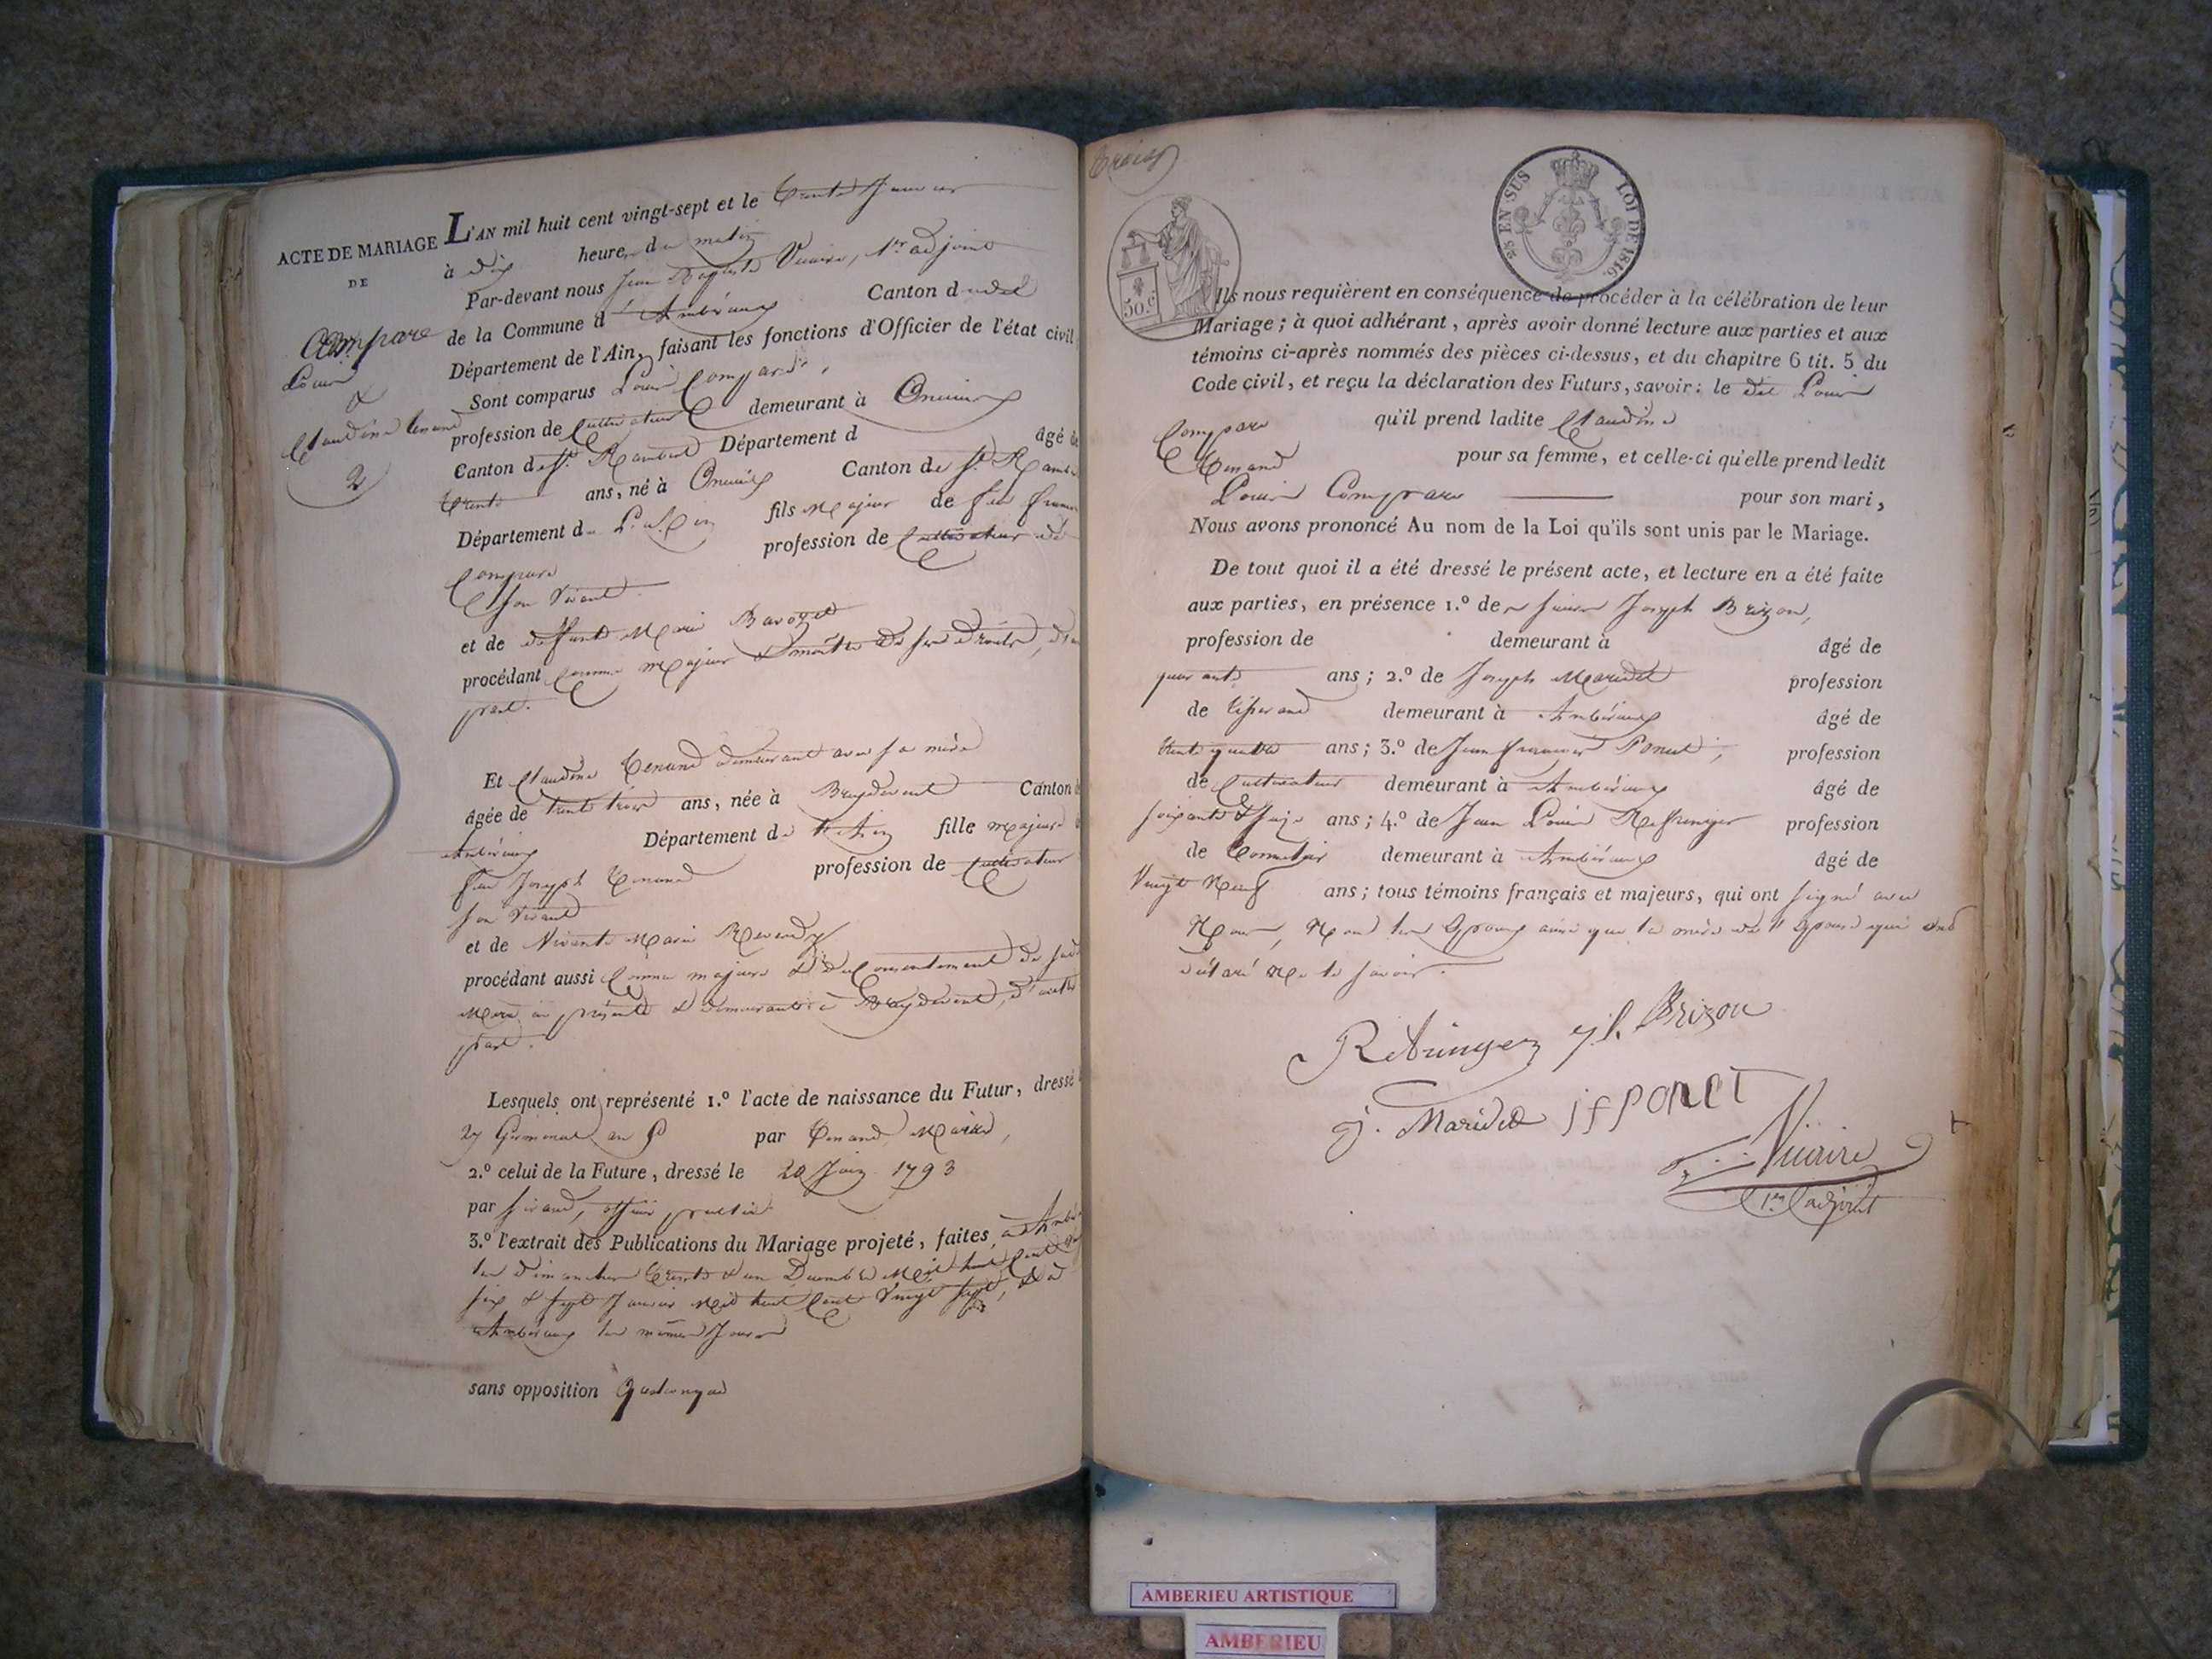 ACTE DE MARIAGE
DE
Compare
Louis
&
Claudine Tenand
2
L'AN mil huit cent vingt-sept et le trente Janvier
à dix heures du matin
Par-devant nous Jean Baptiste Vicaire, 1er adjoint
de la Commune d'Ambérieux Canton dudit
Département de l'Ain, faisant les fonctions d'Officier de l'état civil
Sont comparus Louis Compare,
profession de Cultivateur demeurant à Oncieux
Canton de St. Rambert Département d âgé de
trente ans, né à Oncieux Canton de St. Ramb
Département de L'Ain fils Majeur de feu
Compare profession de Cultivateur de
son vivant
et de deffunte Marie
procédant comme majeur & maître de ses droits, d'une
part.
Et Claudine Tenand demeurant avec sa mère
âgée de trente trois ans, née à Breydevent Canton d
Ambérieux Département de l'Ain fille majeure d
feu Joseph Tenand profession de Cultivateur
son vivant
et de vivante Marie
procédant aussi comme majeure & du Consentement de sad
Mère ici présente & demeurante à Breydevent, d'autre
part.
Lesquels ont représenté 1.º l'acte de naissance du Futur, dressé
27 Germinal an 5 par Tenand Maire,
2.º celui de la Future, dressé le 20 Juin 1793
par Sirand, officier public
3.º l'extrait des Publications du Mariage projeté, faites à Ambé
les dimanches trente & un Décembre Mil huit Cent
six & sept Janvier Mil huit Cent Vingt sept, & à
Ambérieux les mêmes Jours
sans opposition quelconque
trois
50 c.
2s EN SUS
LOI DE 1816.
Ils nous requièrent en conséquence de procéder à la célébration de leur
Mariage ; à quoi adhérant, après avoir donné lecture aux parties et aux
témoins ci-après nommés des pièces ci-dessus, et du chapitre 6 tit. 5 du
Code civil, et reçu la déclaration des Futurs, savoir : le dit Louis
Compare qu'il prend ladite Claudine
Tenand pour sa femme, et celle-ci qu'elle prend ledit
Louis Compare pour son mari,
Nous avons prononcé Au nom de la Loi qu'ils sont unis par le Mariage.
De tout quoi il a été dressé le présent acte, et lecture en a été faite
aux parties, en présence 1.º de sieur Joseph Brizon,
profession de demeurant à âgé de
quarante ans ; 2.º de Joseph Maridet profession
de tisserand demeurant à Ambérieux âgé de
trente quatre ans ; 3.º de Jean François Ponet, profession
de Cultivateur demeurant à Ambérieux âgé de
soixante & seize ans ; 4.º de Jean Louis profession
de demeurant à Ambérieux âgé de
Vingt Neuf ans ; tous témoins français et majeurs, qui ont signé avec
Nous, Non les Epoux ainsi que la mère de l'Epouse qui ont
déclaré Ne le savoir.
J. Brizon
J. Maridet jf PONET
Vicaire
1er adjoint
AMBERIEU ARTISTIQUE
AMBERIEU